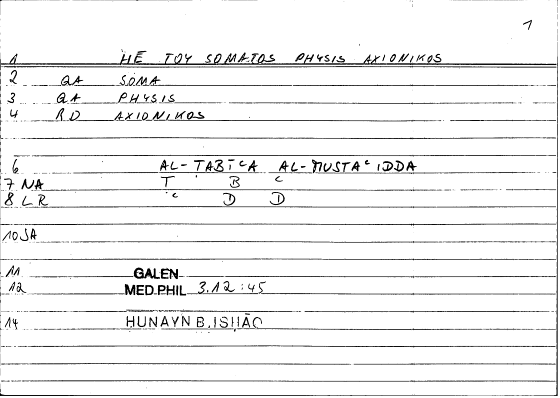 1
1 HE TOY SOMATOS PHYSIS AXIONIKOS
2 QA SOMA
3 QA PHYSIS
4 RD AXIONIKOS
6 AL-TABIᶜA AL-MUSTAᶜIDDA
7 NA Ṭ B ᶜ
8 LR ᶜ D D
10 JA
11 GALEN
12 MED.PHIL 3.12:45
14 HUNAYN B. ISHĀQ